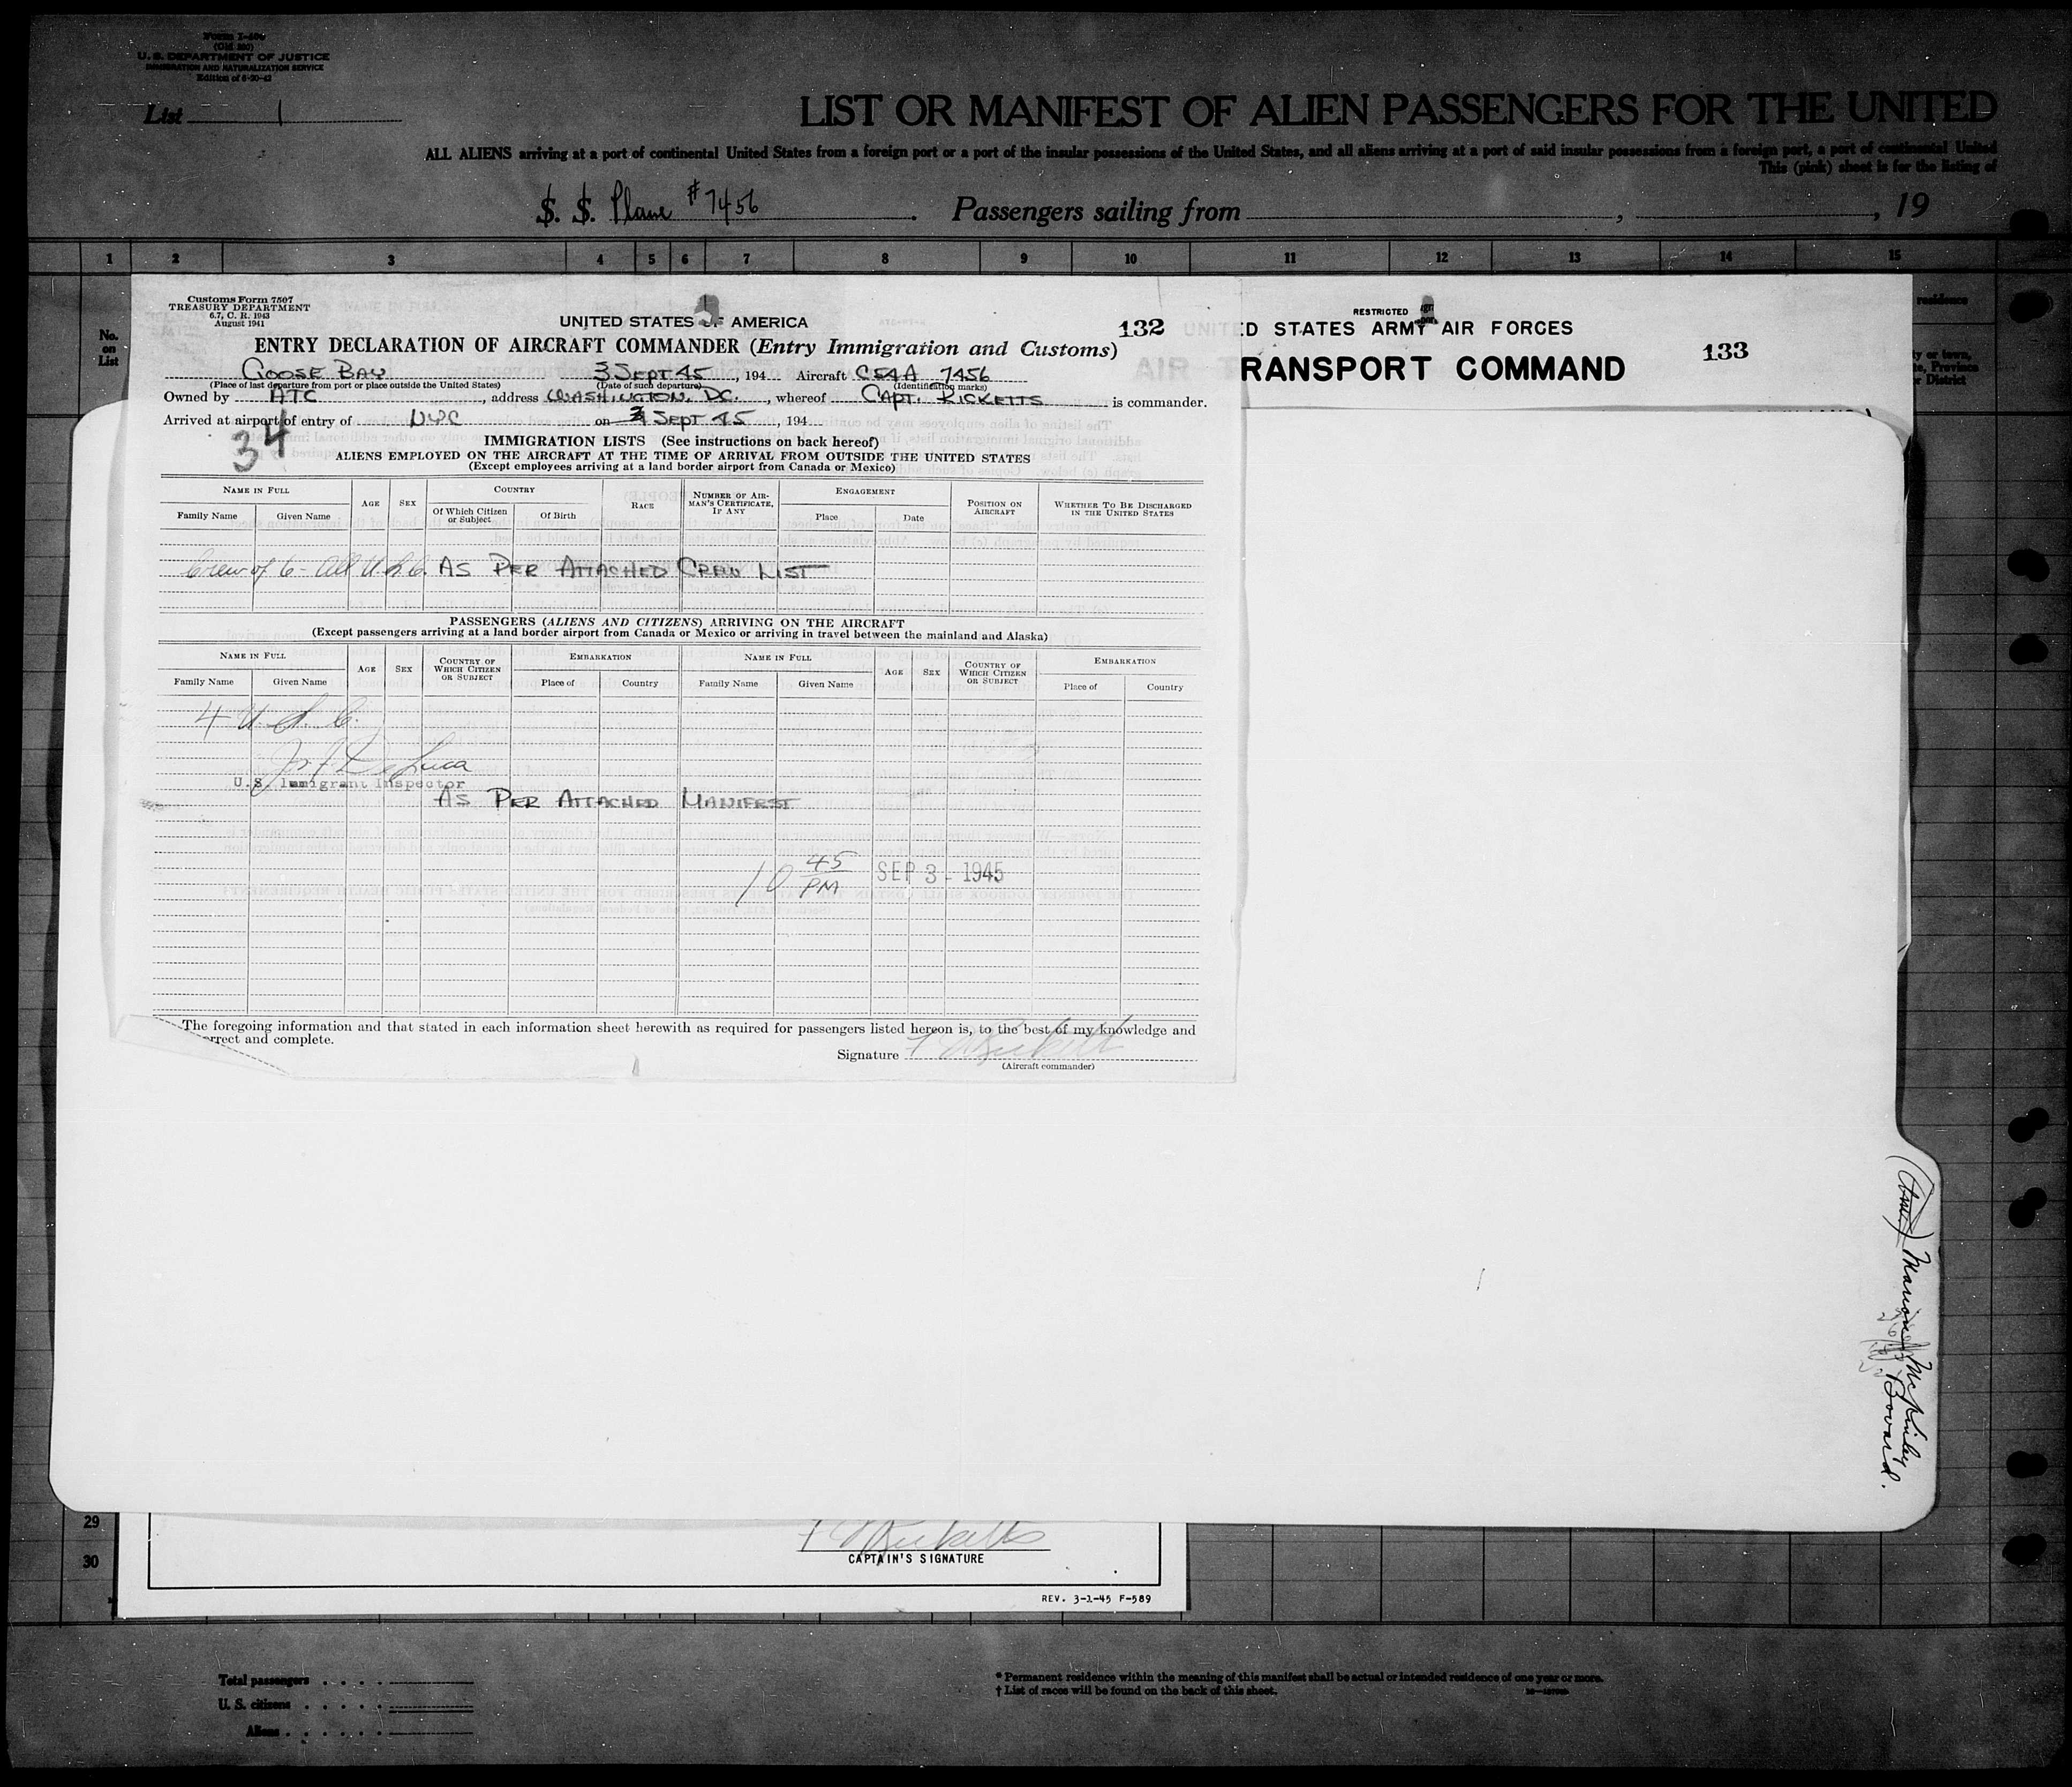 Form I-404
(Old 500)
U. S. DEPARTMENT OF JUSTICE
IMMIGRATION AND NATURALIZATION SERVICE
Edition of 6-20-42
List 1
LIST OR MANIFEST OF ALIEN PASSENGERS FOR THE UNITED
ALL ALIENS arriving at a port of continental United States from a foreign port or a port of the insular possessions of the United States, and all aliens arriving at a port of said insular possessions from a foreign port, a port of continental United
This (pink) sheet is for the listing of
S. S. Plane #7456 . Passengers sailing from , , 19
1 2 3 4 5 6 7 8 9 10 11 12 13 14 15
No. on List
residence
y or town,
e, Province
r District
Customs Form 7507
TREASURY DEPARTMENT
6.7, C. R. 1943
August 1941
UNITED STATES OF AMERICA
132
ENTRY DECLARATION OF AIRCRAFT COMMANDER (Entry Immigration and Customs)
GOOSE BAY 3 SEPT 45, 194 Aircraft C54A 7456
(Place of last departure from port or place outside the United States) (Date of such departure) (Identification marks)
Owned by ATC, address WASHINGTON, DC., whereof CAPT. RICKETTS is commander.
Arrived at airport of entry of NYC on 3 SEPT 45, 194
34
IMMIGRATION LISTS (See instructions on back hereof)
ALIENS EMPLOYED ON THE AIRCRAFT AT THE TIME OF ARRIVAL FROM OUTSIDE THE UNITED STATES
(Except employees arriving at a land border airport from Canada or Mexico)
NAME IN FULL AGE SEX COUNTRY RACE NUMBER OF AIRMAN'S CERTIFICATE, IF ANY ENGAGEMENT POSITION ON AIRCRAFT WHETHER TO BE DISCHARGED IN THE UNITED STATES
Family Name Given Name Of Which Citizen or Subject Of Birth Place Date
Crew of 6 - All U.S.C. AS PER ATTACHED CREW LIST
PASSENGERS (ALIENS AND CITIZENS) ARRIVING ON THE AIRCRAFT
(Except passengers arriving at a land border airport from Canada or Mexico or arriving in travel between the mainland and Alaska)
NAME IN FULL AGE SEX COUNTRY OF WHICH CITIZEN OR SUBJECT EMBARKATION NAME IN FULL AGE SEX COUNTRY OF WHICH CITIZEN OR SUBJECT EMBARKATION
Family Name Given Name Place of Country Family Name Given Name Place of Country
4 U.S.C.
U.S. Immigrant Inspector
AS PER ATTACHED MANIFEST
10 45 PM SEP 3 - 1945
The foregoing information and that stated in each information sheet herewith as required for passengers listed hereon is, to the best of my knowledge and
orrect and complete.
Signature Ricketts
(Aircraft commander)
RESTRICTED
D STATES ARMY AIR FORCES
133
RANSPORT COMMAND
Ricketts
CAPTAIN'S SIGNATURE
REV. 3-1-45 F-589
29
30
Total passengers
U. S. citizens
Aliens
* Permanent residence within the meaning of this manifest shall be actual or intended residence of one year or more.
† List of races will be found on the back of this sheet.
McKinley
Bovard.